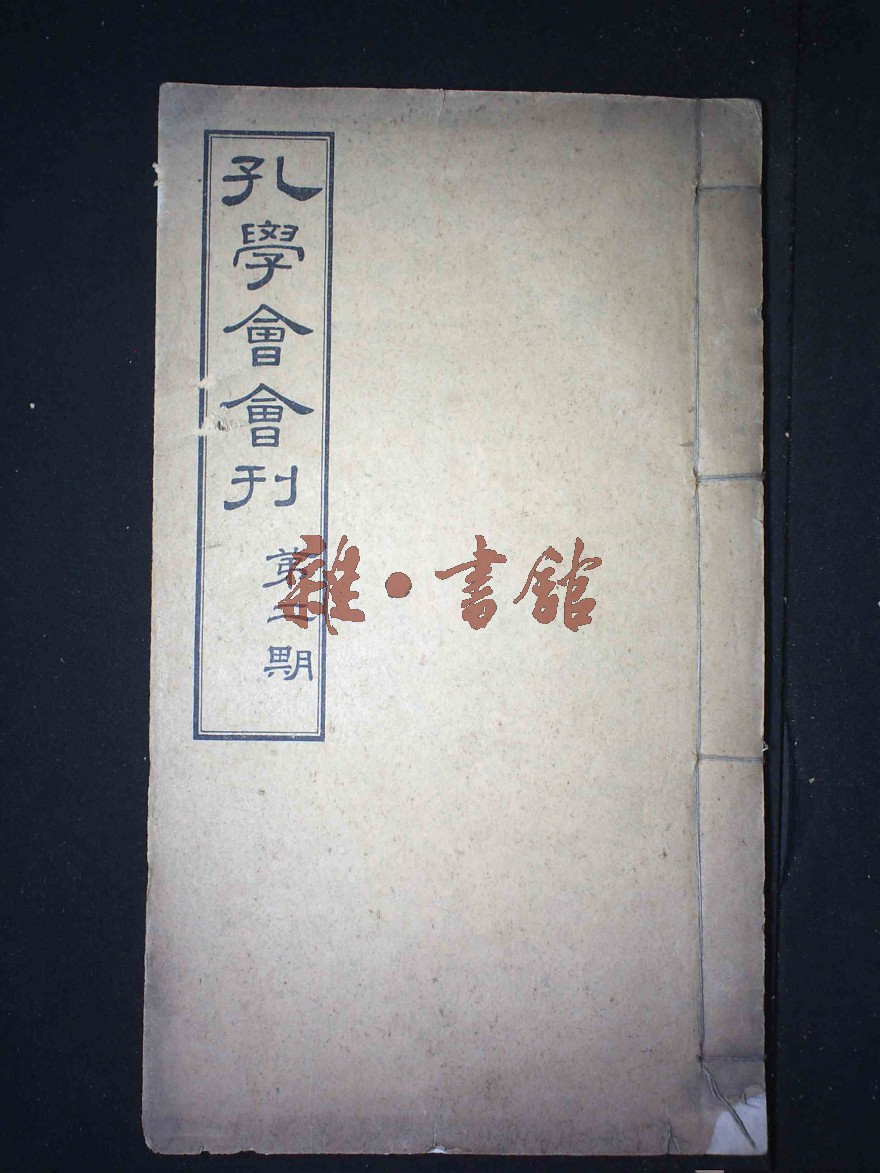 孔學會會刊
第期
雜•書館